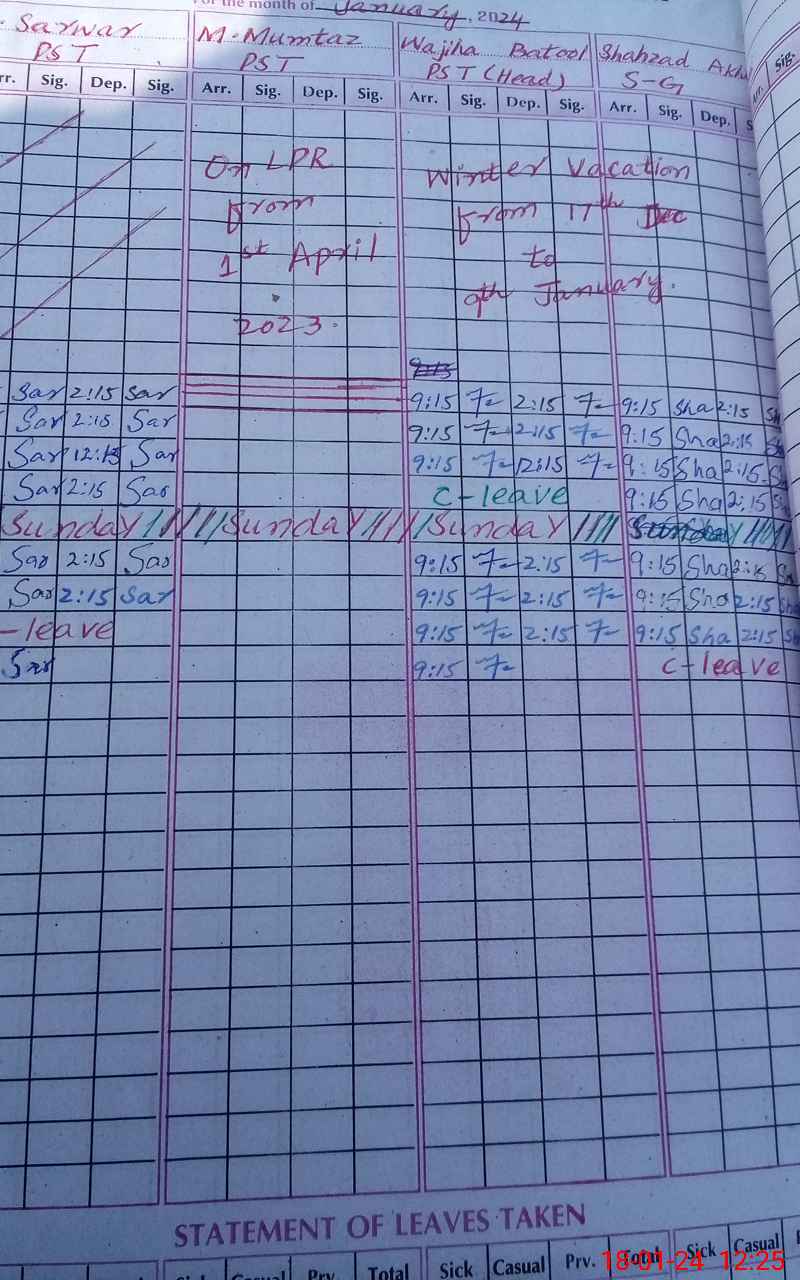 For the month of January, 2024
Sarwar M. Mumtaz Wajiha Batool Shahzad
PST PST PST (Head) S-G
Sig. Dep. Sig. Arr. Sig. Dep. Sig. Arr. Sig. Dep. Sig. Arr. Sig. Dep.
On LPR Winter Vacation
from from 17th Dec
1st April to
2023. 9th January.
9:15
Sar 2:15 Sar 9:15 2:15 9:15 Sha 2:15
Sar 2:15 Sar 9:15 2:15 9:15 Sha 2:15
Sar 12:15 Sar 9:15 12:15 9:15 Sha 2:15
Sar 2:15 Sar C-leave 9:15 Sha 2:15
Sunday Sunday Sunday Sunday
Sar 2:15 Sar 9:15 2:15 9:15 Sha 2:15
Sar 2:15 Sar 9:15 2:15 9:15 Sha 2:15
-leave 9:15 2:15 9:15 Sha 2:15
Sar 9:15 C-leave
STATEMENT OF LEAVES TAKEN
Sick Casual Prv. Total Sick Casual Prv. Total Sick Casual
18-01-24 12:25